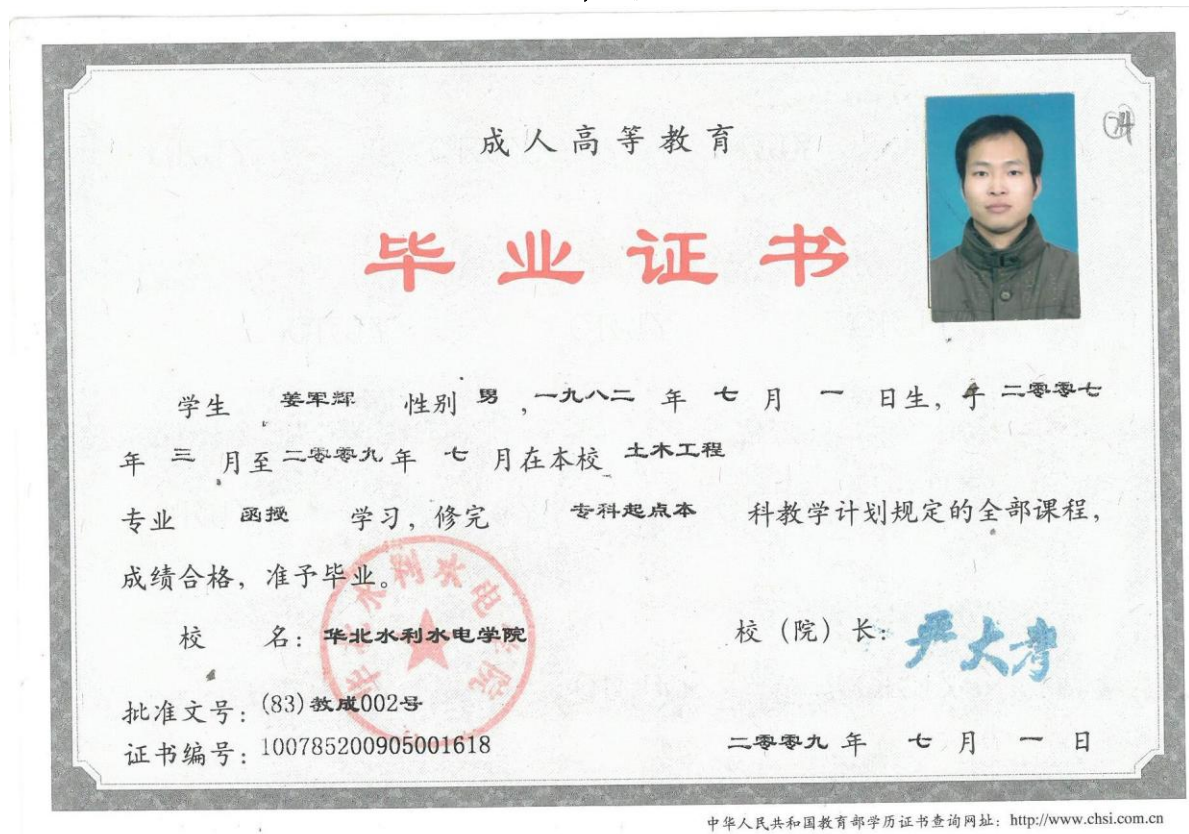 成人高等教育
毕业证书
学生 姜军辉 性别 男 ,一九八二 年 七 月 一 日生, 于 二零零七
年 三 月至 二零零九 年 七 月在本校 土木工程
专业 函授 学习, 修完 专科起点本 科教学计划规定的全部课程,
成绩合格, 准予毕业。
华北水利水电学院
校 名: 华北水利水电学院
校 (院) 长: 严大考
批准文号: (83)教成002号
证书编号: 100785200905001618
二零零九 年 七 月 一 日
中华人民共和国教育部学历证书查询网址: http://www.chsi.com.cn